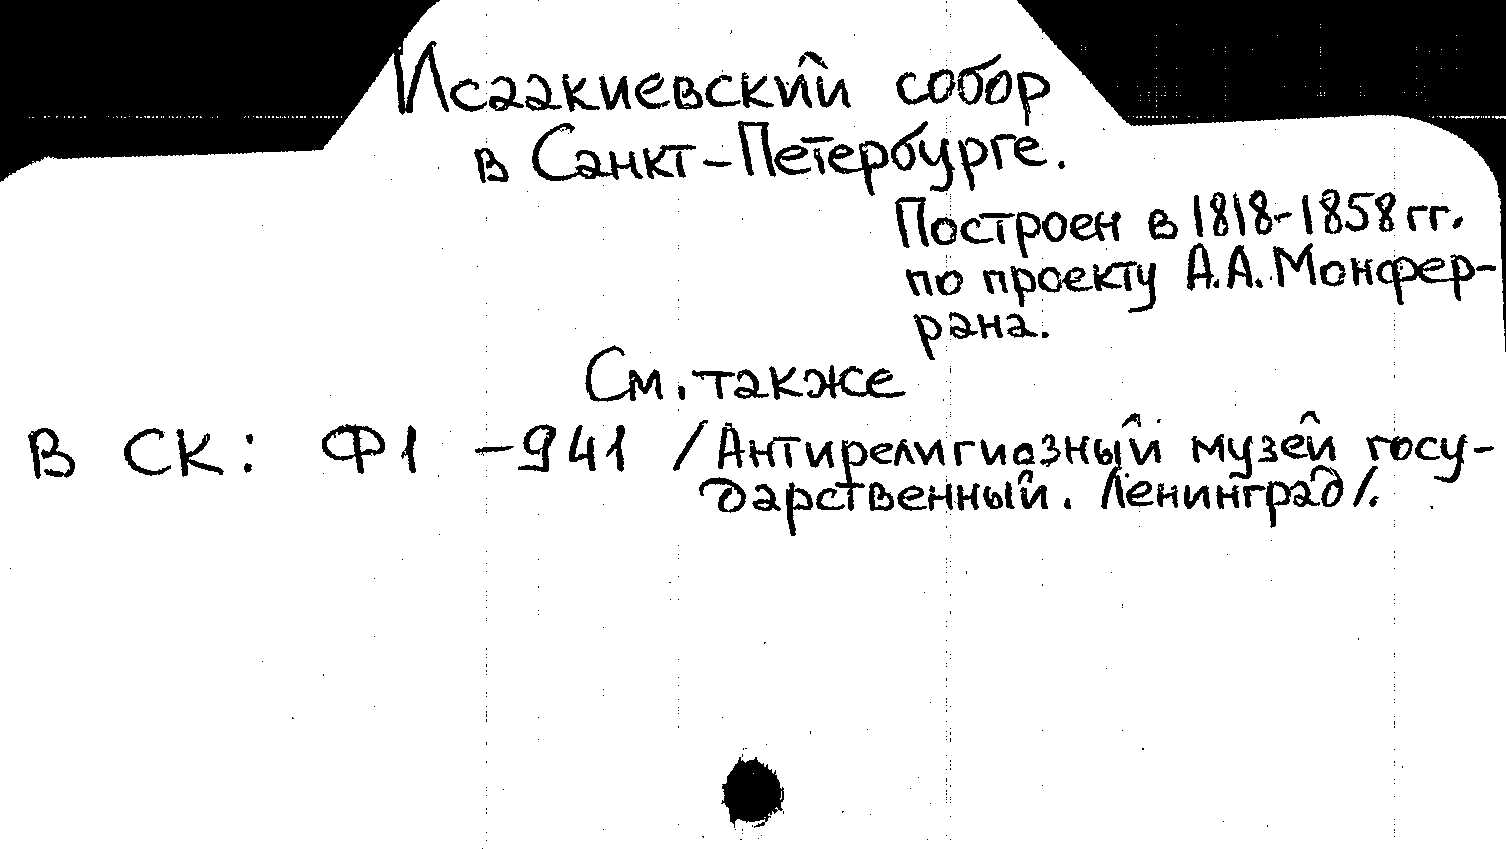 Исаакиевский собор
в Санкт-Петербурге.
Построен в 1818-1858 гг.
по проекту А.А. Монфер-
рана.
См. также
В СК: Ф1 -941 /Антирелигиозный музей госу-
дарственный. Ленинград/.